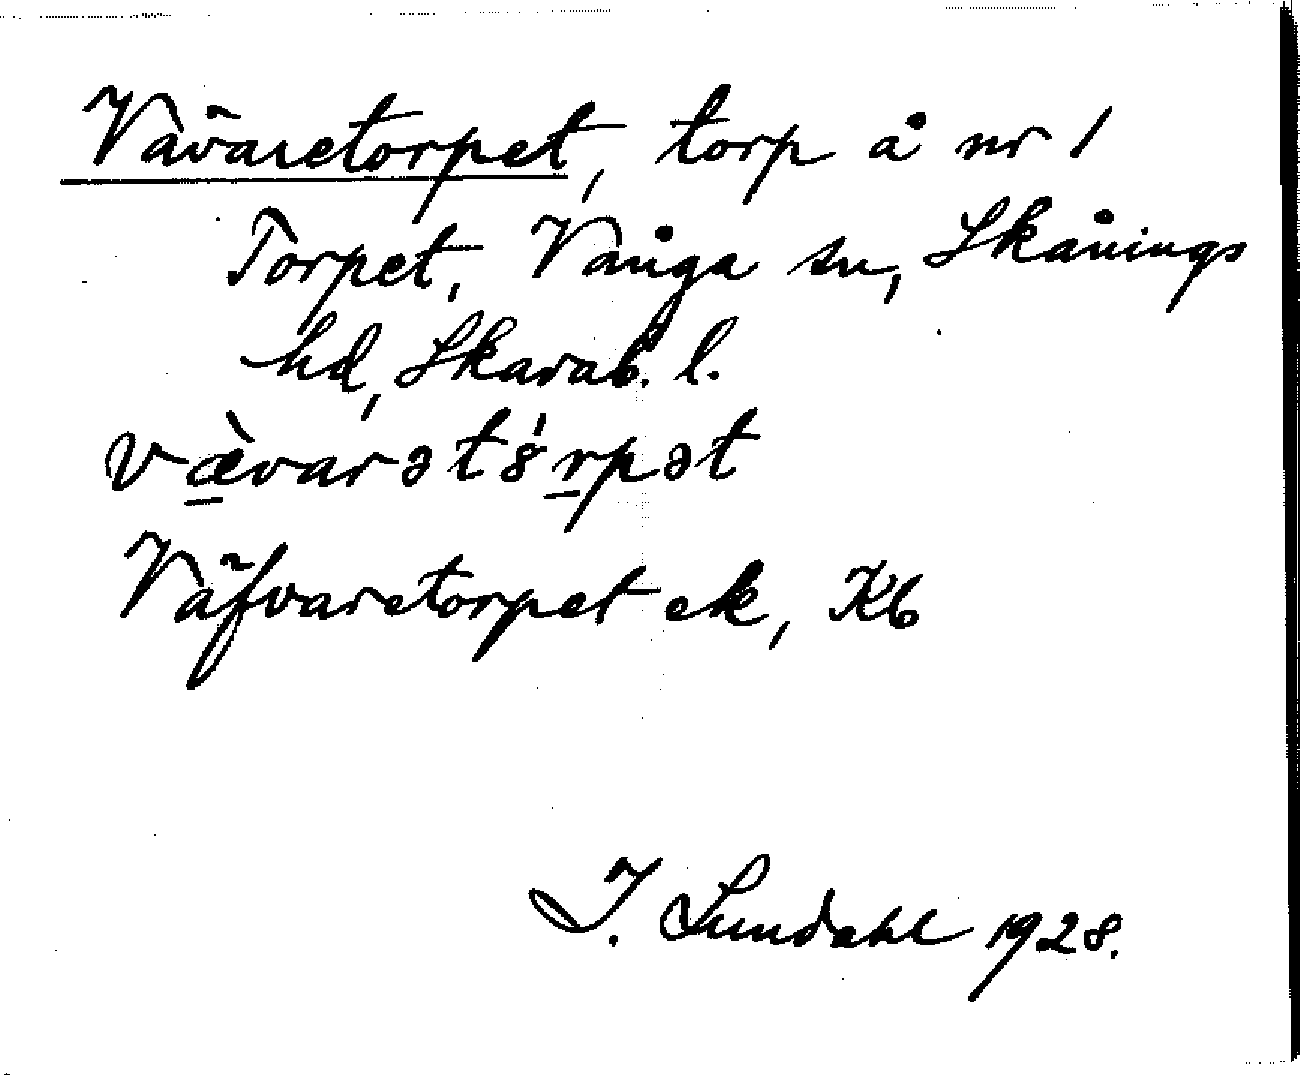 Vävaretorpet, torp å nr 1
Torpet, Vånga sn, Skånings
hd, Skarab. l.
væ̀varət8́rpət
Väfvaretorpet ek, Kb
I. Lundahl 1928.